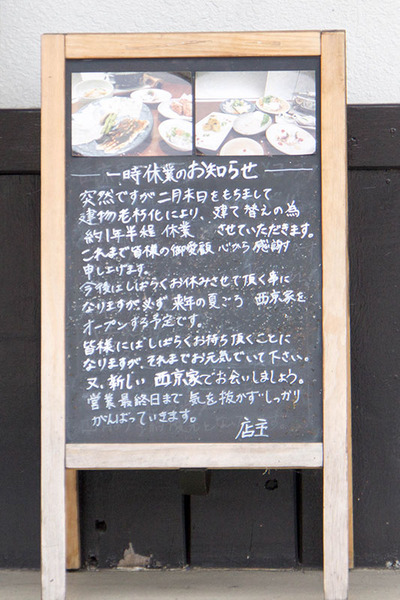 一時休業のお知らせ
突然ですが二月末日をもちまして
建物老朽化により、建て替えの為
約1年半程 休業 させていただきます。
これまで皆様の御愛顧 心から感謝
申し上げます。
今後はしばらくお休みさせて頂く事に
なりますが、必ず 来年の夏ごろ 西京家を
オープンする予定です。
皆様にはしばらくお待ち頂くことに
なりますが、それまでお元気でいて下さい。
又、新しい 西京家でお会いしましょう。
営業最終日まで 気を抜かずしっかり
がんばっていきます。
店主